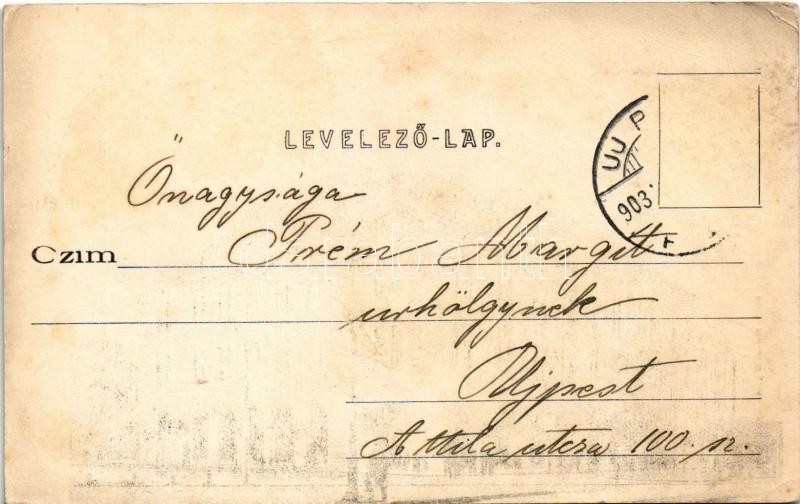 LEVELEZŐ-LAP.
UJ P
903.
Őnagysága
Czim Prém Margit
urhölgynek
Ujpest
Attila utcza 100. sz.